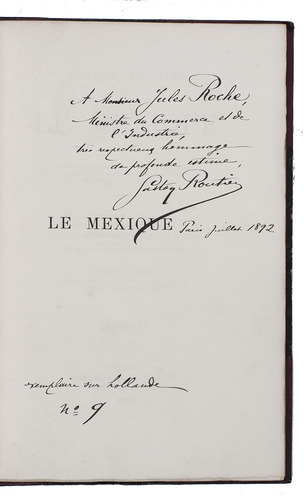 A Monsieur Jules Roche,
Ministre du Commerce et de
l'Industrie,
très respectueux hommage
de profonde estime,
Gaston Routier
LE MEXIQUE Paris juillet 1892
exemplaire sur hollande
nº 9